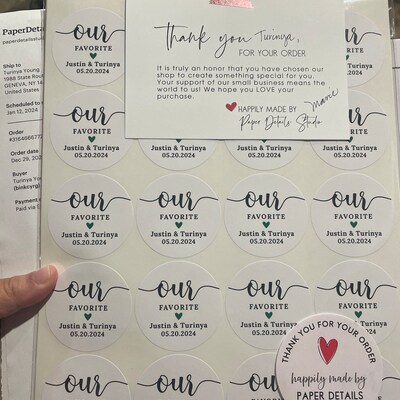 PaperDeta
paperdetailsstu
Ship to
Turinya Young
1988 State Rout
GENEVA, NY 14
United States
Scheduled to
Jan 12, 2024
Order
Order date
Dec 29, 20
Buyer
Turinya Yo
Payment
Paid via E
Thank you Turinya,
FOR YOUR ORDER
It is truly an honor that you have chosen our
shop to create something special for you.
Your support of our small business means the
world to us! We hope you LOVE your
purchase.
HAPPILY MADE BY
Paper Details Studio
our
FAVORITE
Justin & Turinya
05.20.2024
Justin & Turinya
05.20.2024
Justin & Turinya
05.20.2024
Justin & Turinya
05.20.2024
Justin & Turinya
05.20.2024
our
FAVORITE
Justin & Turinya
05.20.2024
our
FAVORITE
Justin & Turinya
05.20.2024
our
FAVORITE
Justin & Turinya
05.20.2024
our
FAVORITE
Justin & Turinya
05.20.2024
our
FAVORITE
Justin & Turinya
05.20.2024
our
FAVORITE
Justin & Turinya
05.20.2024
our
FAVORITE
Justin & Turinya
05.20.2024
our
FAVORITE
our
our
our
THANK YOU FOR YOUR ORDER
happily made by
PAPER DETAILS